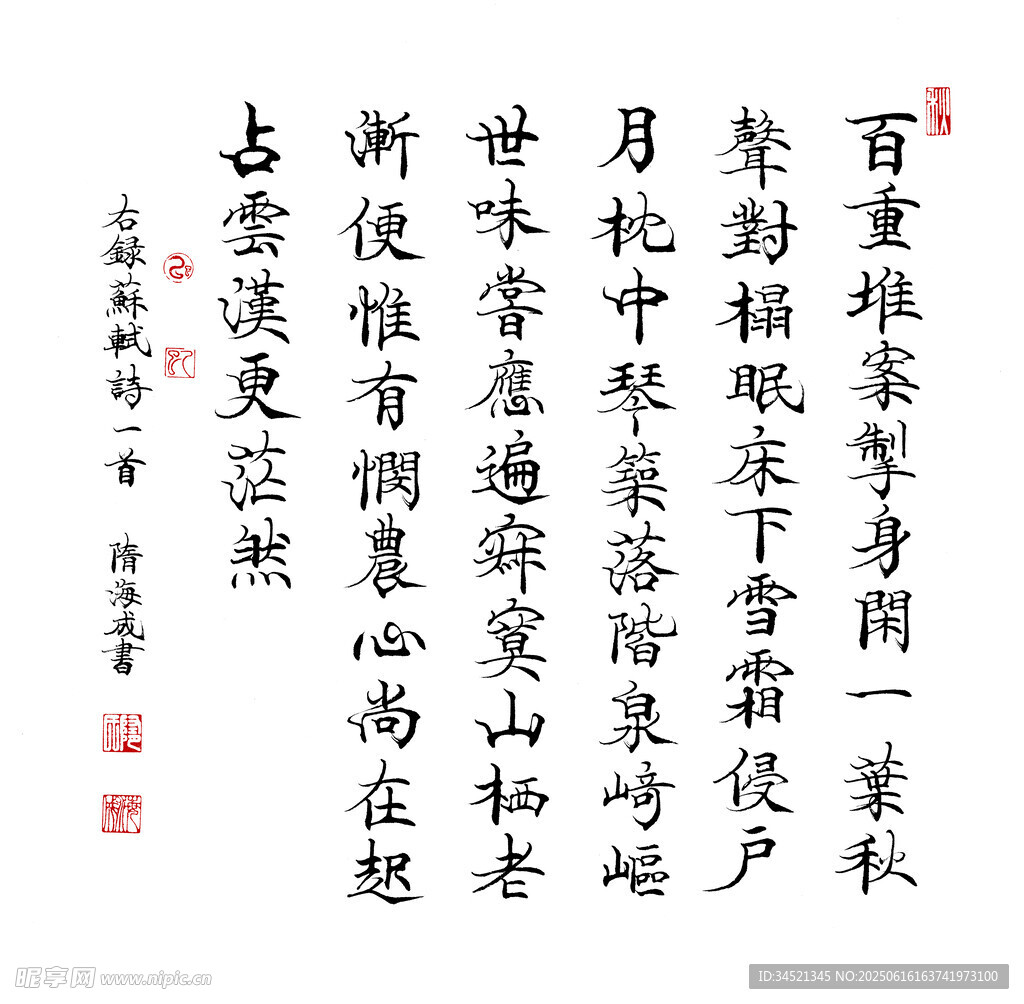 百重堆案掣身閑一葉秋
聲對榻眠床下雪霜侵戶
月枕中琴築落階泉崎嶇
世味嘗應遍寂寞山栖老
漸便惟有憫農心尚在起
占雲漢更茫然
右録蘇軾詩一首 隋海成書
昵享网 www.nipic.cn
ID:34521345 NO:20250616163741973100